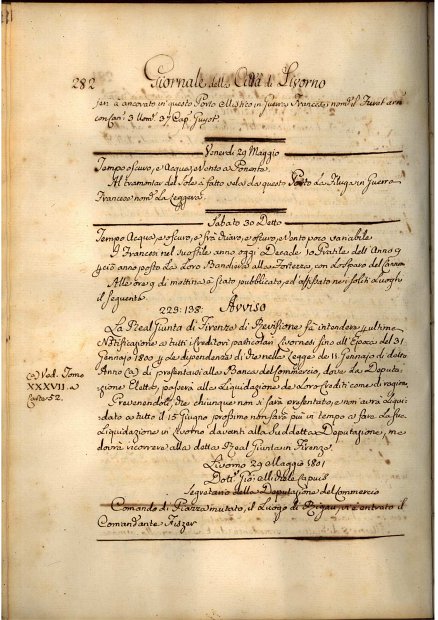 282 Giornale della Città di Livorno
sera a ancorato in questo Porto Mistico in Guerra Francese nomº. il Furet armº.
con Canⁱ. 3 Uomⁱ. 37 Cap. Guyot.
Venerdi 29 Maggio
Tempo oscuro, e Acqua, e Vento a Ponente
Al tramontar del Sole a fatto vela da questo Porto La Fluga in Guerra
Francese nomª. La Leggera
Sabato 30 Detto
Tempo Acqua, e oscuro, e frà Chiaro, e oscuro, e Vento poco variabile
I Francesi nel suo stile anno oggi Decade 10 Pratile dell'Anno 9
anno posto La loro Bandiera alla Fortezza, con Lo sparo del Cannone
Alle ore 9 di mattina è stato pubblicato, ed affisso nei soliti Luoghi
il seguente
223:138: Avviso
La Real Giunta di Firenze di Revisione fa intendere ultima
Notificazione a tutti i Creditori particolari Livornesi fino all'Epoca del 31
Gennajo 1800 dipendenza di che nella Legge de 11 Gennajo di detto
Anno (a) di presentarsi alla Banca del Commercio, dove La Deputa-
zione Eletta, passerà alla Liquidazione de Loro Crediti come di ragione.
Prevenendoli, che chiunque non si sarà presentato, e non avrà Liqui-
dato a tutto il 15 Giugno prossimo non sarà più in tempo a fare La sua
Liquidazione in Livorno davanti alla suddetta Deputazione, me
dovrà ricorrere alla detta Real Giunta in Firenze.
Livorno 29 Maggio 1801
Dottʳ. Gioⁱ. Michele
Segretario della Deputazione del Commercio
(a) Ved. Tomo
XXXVII. a
Carte 52.
Comando di Piazza mutato, il Luogo di Rigau, vi è entrato il
Comandante Fiszer